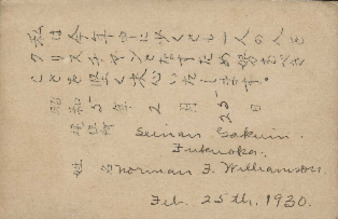 私は今年中に少くとも一人の人を
クリスチャンとなすため努むべき
ことを堅く決心いたします。
昭和5年2月25日
現住所 Seinan Gakuin.
Fukuoka.
姓名 Norman F. Williamson
Feb. 25th, 1930.